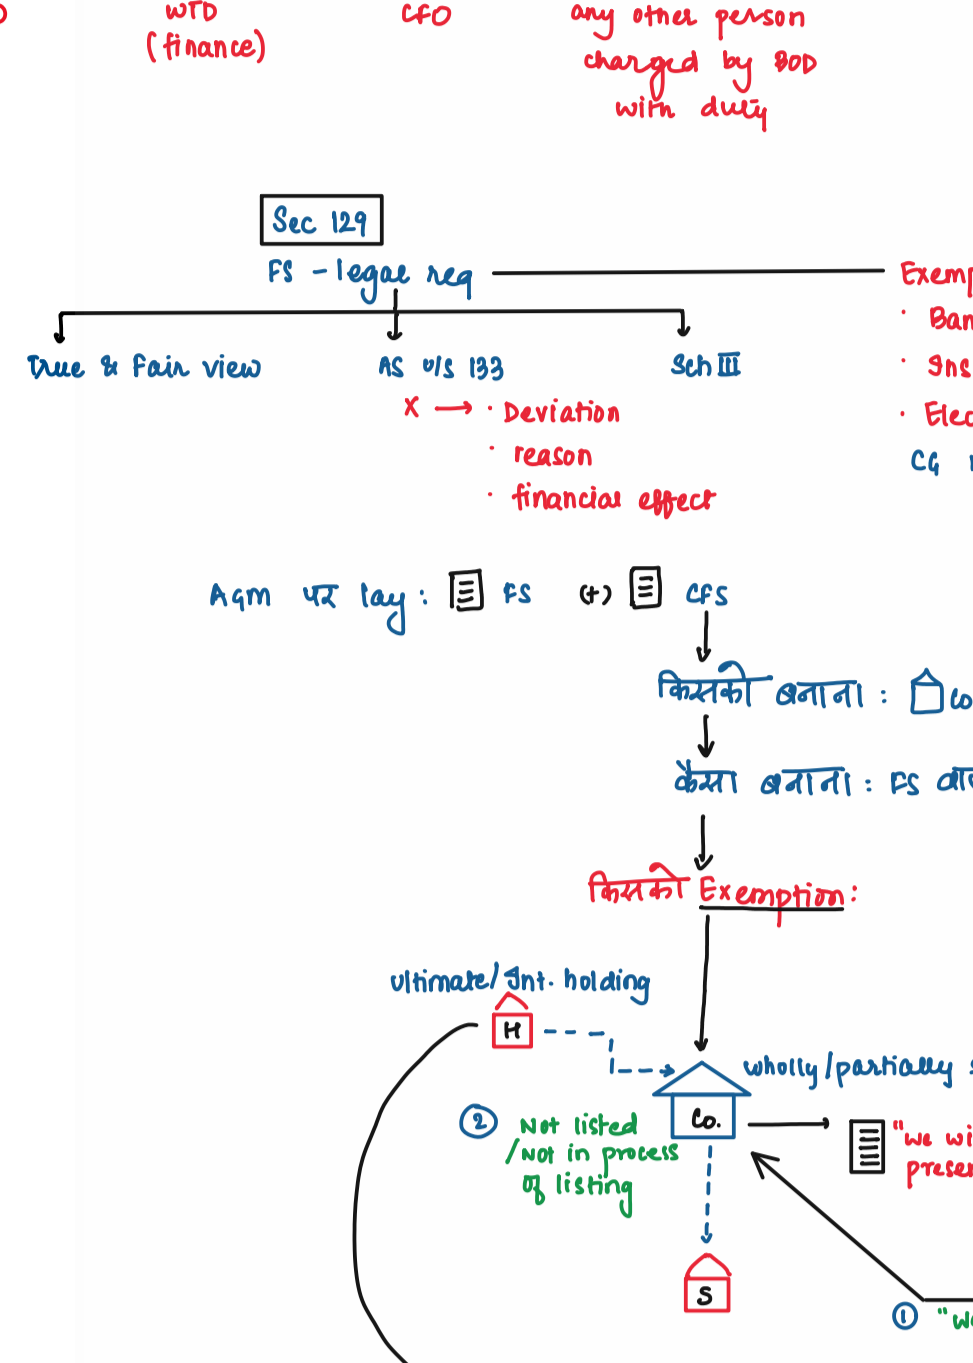 WTD
(finance)
CFO
any other person
charged by BOD
with duty
Sec 129
FS - legal req
Exemp
True & Fair view
AS U/S 133
Sch III
· Ban
· Ins
· Elec
CG
X → · Deviation
· reason
· financial effect
AGM पर lay: FS (+) CFS
किसको बनाना : Co
कैसा बनाना : FS
किसको Exemption:
ultimate/Int. holding
H
wholly/partially s
Co.
② Not listed
/Not in process
of listing
"we wi
presen
S
① "we